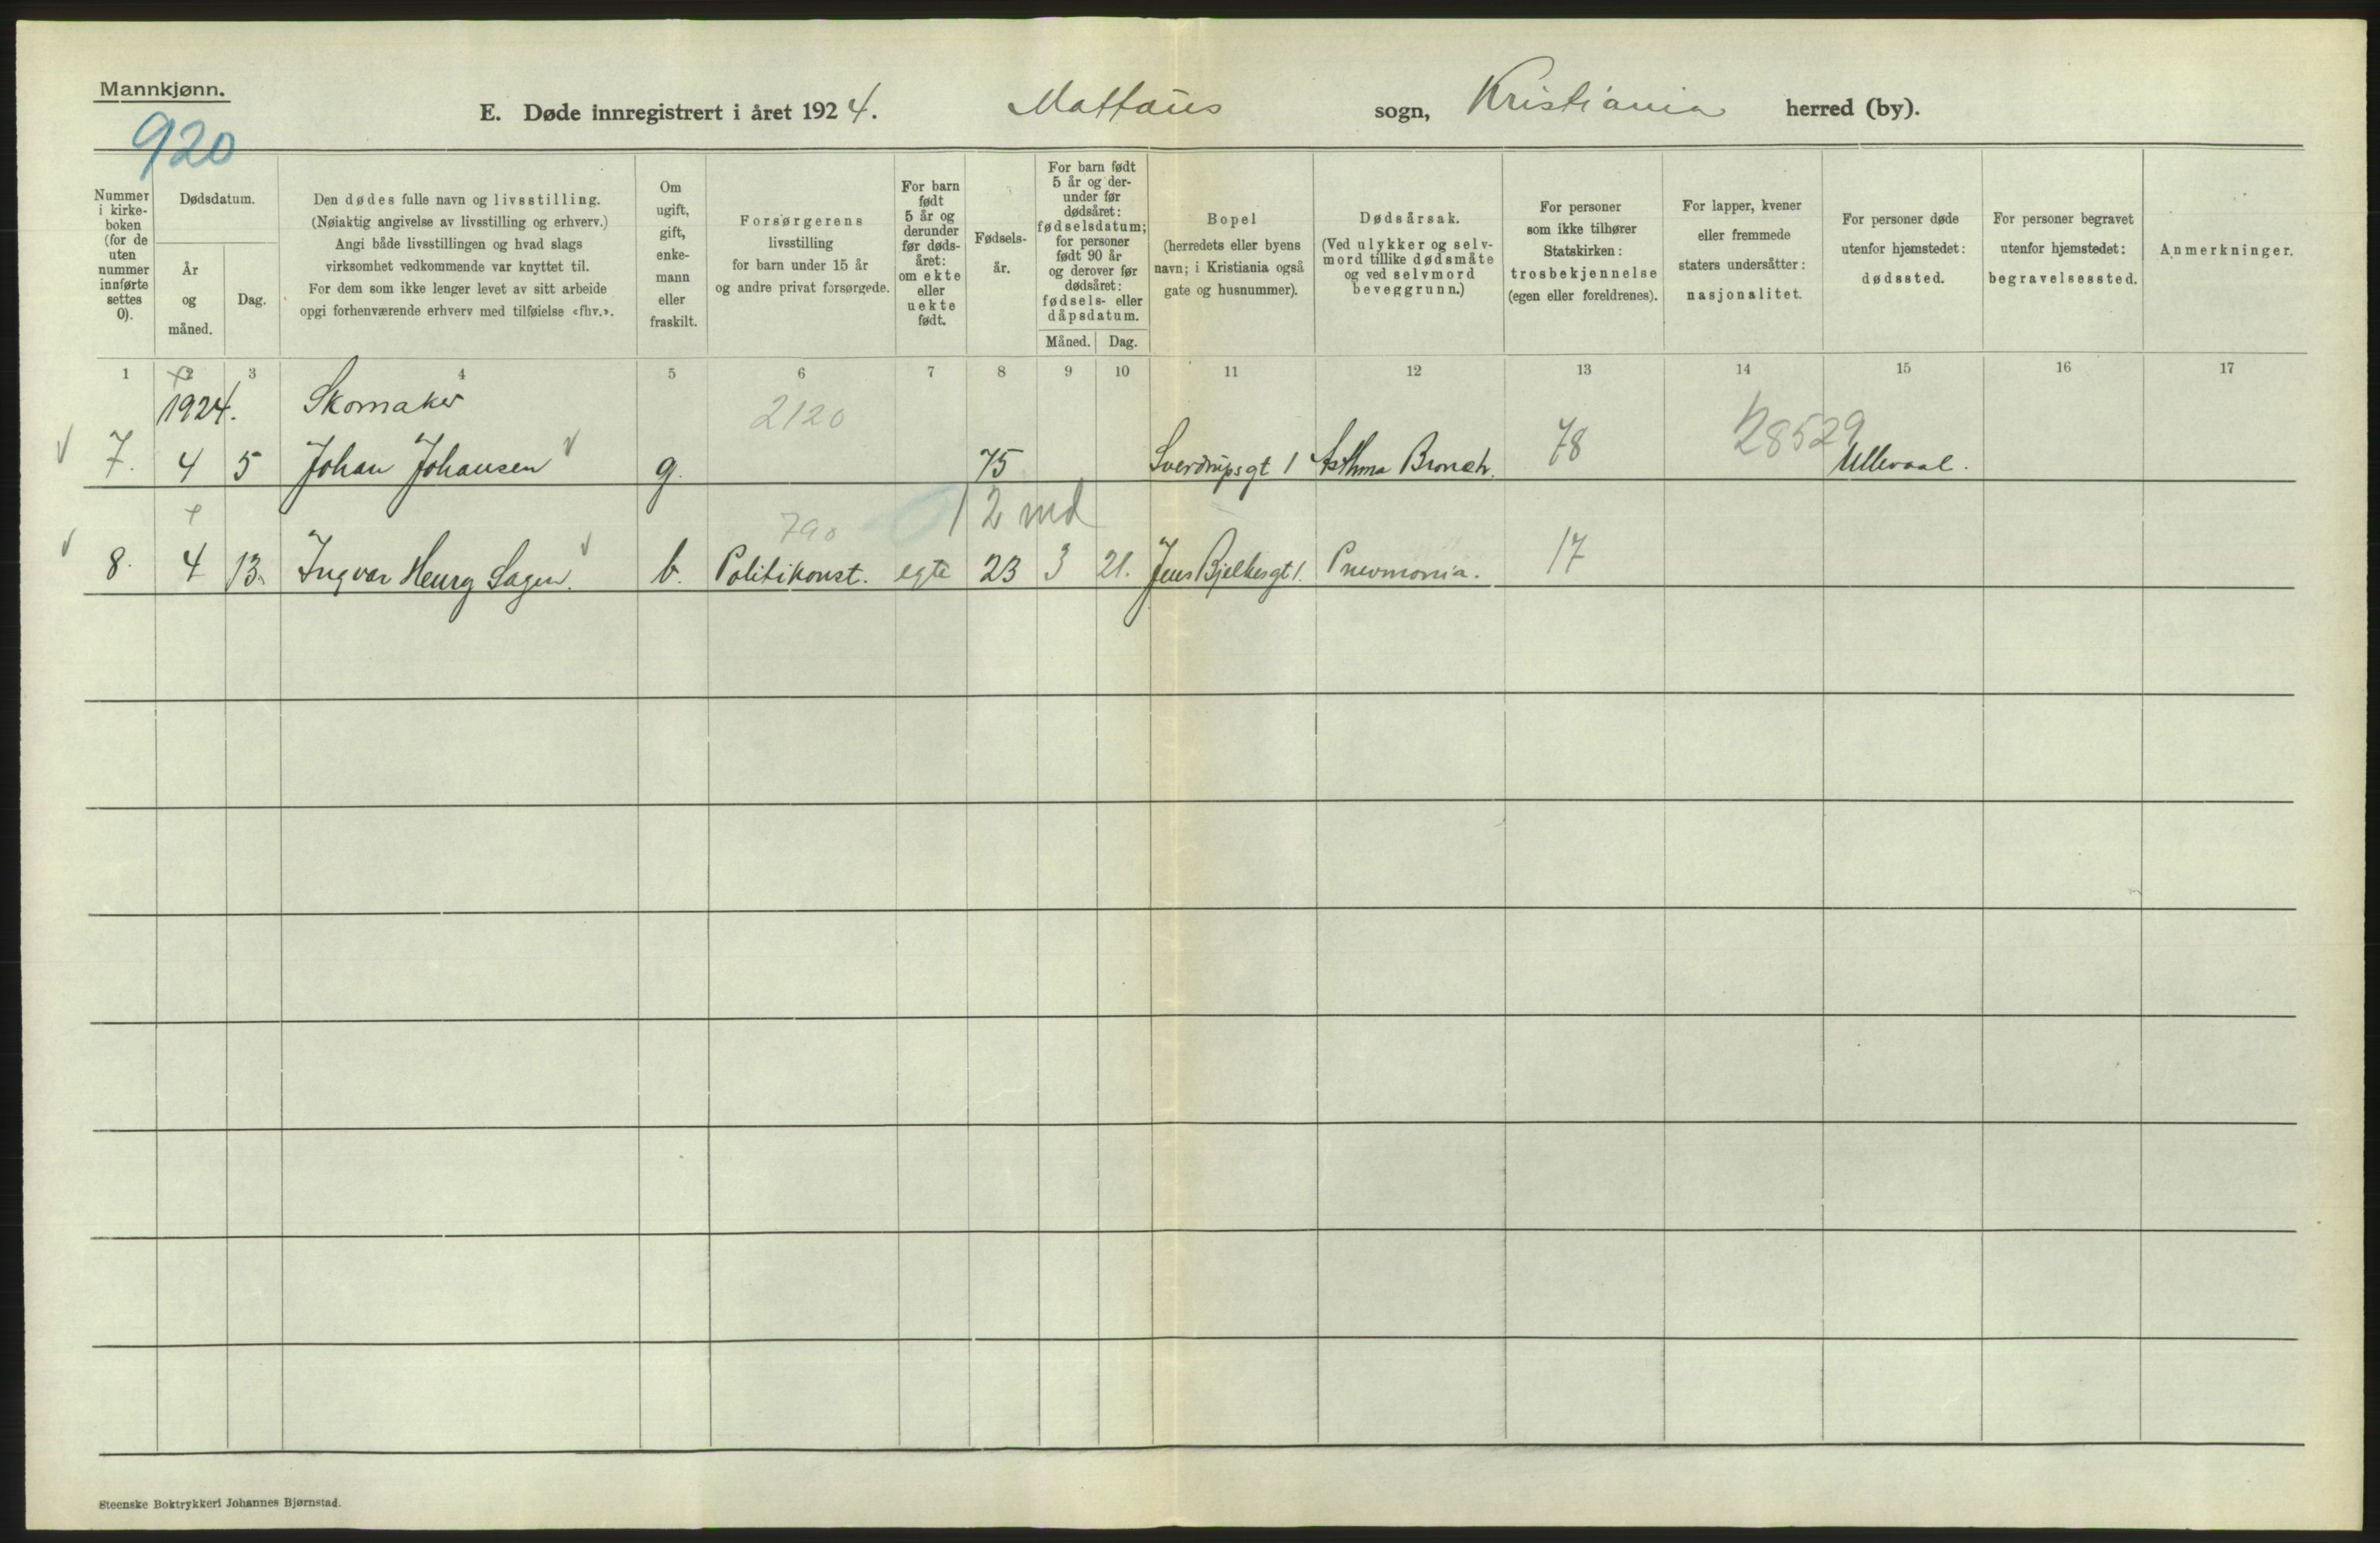 Mannkjønn.
920
E. Døde innregistrert i året 1924. Mattæus sogn, Kristiania herred (by).
Nummer i kirke-boken (for de uten nummer innførte settes 0).
Dødsdatum.
År og måned.
Dag.
Den dødes fulle navn og livsstilling.
(Nøiaktig angivelse av livsstilling og erhverv.)
Angi både livsstillingen og hvad slags
virksomhet vedkommende var knyttet til.
For dem som ikke lenger levet av sitt arbeide
opgi forhenværende erhverv med tilføielse «fhv.».
Om ugift, gift, enke-mann eller fraskilt.
Forsørgerens
livsstilling
for barn under 15 år
og andre privat forsørgede.
For barn født 5 år og derunder før døds-året: om ekte eller uekte født.
Fødsels-år.
For barn født 5 år og der-under før dødsåret: fødselsdatum; for personer født 90 år og derover før dødsåret: fødsels- eller dåpsdatum.
Måned. Dag.
Bopel
(herredets eller byens
navn; i Kristiania også
gate og husnummer).
Dødsårsak.
(Ved ulykker og selv-
mord tillike dødsmåte
og ved selvmord
beveggrunn.)
For personer
som ikke tilhører
Statskirken:
trosbekjennelse
(egen eller foreldrenes).
For lapper, kvener
eller fremmede
staters undersåtter:
nasjonalitet.
For personer døde
utenfor hjemstedet:
dødssted.
For personer begravet
utenfor hjemstedet:
begravelsessted.
Anmerkninger.
1 2 3 4 5 6 7 8 9 10 11 12 13 14 15 16 17
1924. Skomaker 2120 28529
7. 4 5 Johan Johansen g. 75 Sverdrupsgt 1 Asthma Bronch. 78 Ullevaal.
790 2 md
8. 4 13. Ingvar Henry Sagen. b. Politikonst. egte 23 3 21. Jens Bjelkesgt 1. Pneumonia. 17
Steenske Boktrykkeri Johannes Bjørnstad.